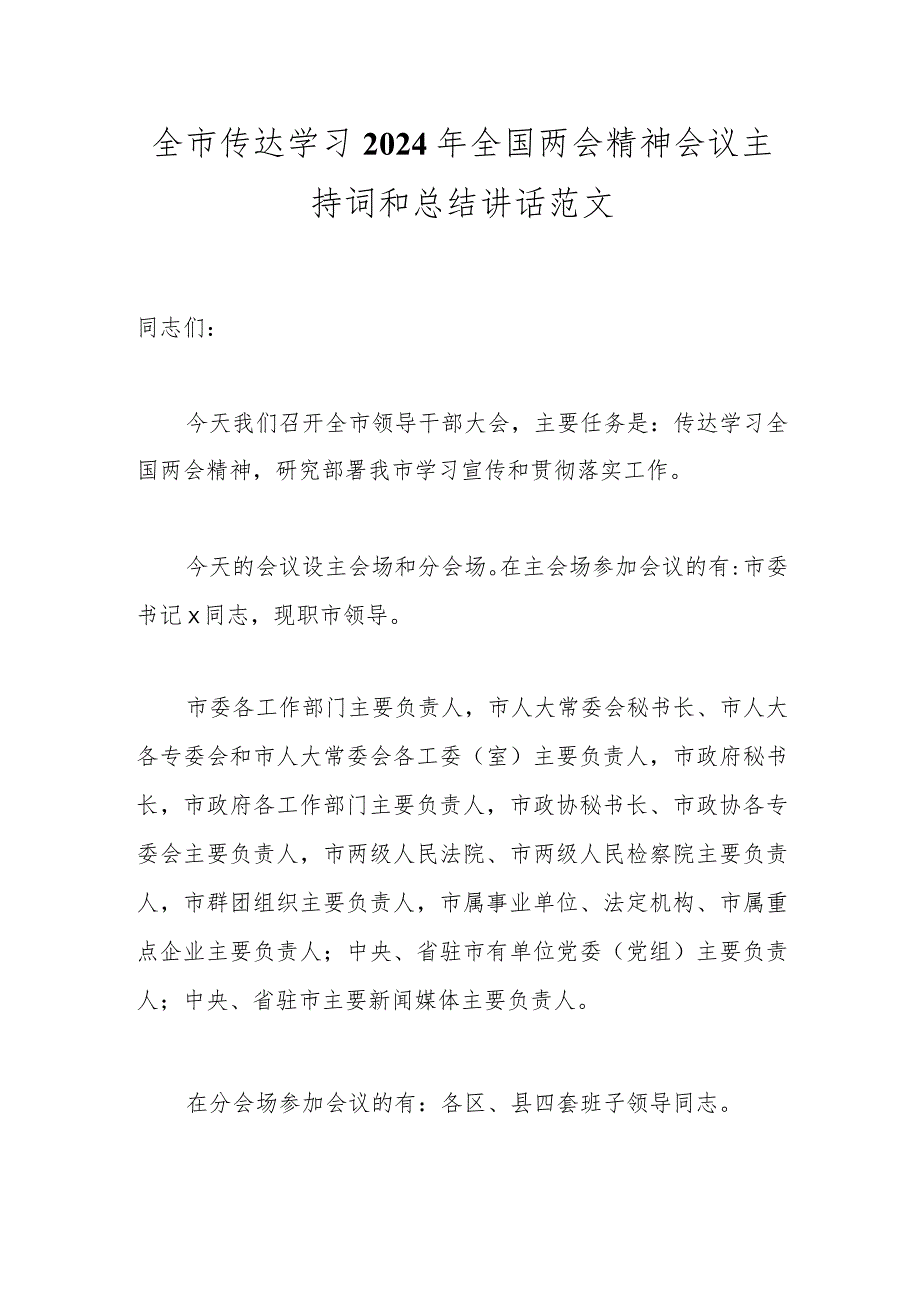 全市传达学习 2024 年全国两会精神会议主
持词和总结讲话范文
同志们：
今天我们召开全市领导干部大会，主要任务是：传达学习全
国两会精神，研究部署我市学习宣传和贯彻落实工作。
今天的会议设主会场和分会场。在主会场参加会议的有：市委
书记x同志，现职市领导。
市委各工作部门主要负责人，市人大常委会秘书长、市人大
各专委会和市人大常委会各工委（室）主要负责人，市政府秘书
长，市政府各工作部门主要负责人，市政协秘书长、市政协各专
委会主要负责人，市两级人民法院、市两级人民检察院主要负责
人，市群团组织主要负责人，市属事业单位、法定机构、市属重
点企业主要负责人；中央、省驻市有单位党委（党组）主要负责
人；中央、省驻市主要新闻媒体主要负责人。
在分会场参加会议的有：各区、县四套班子领导同志。